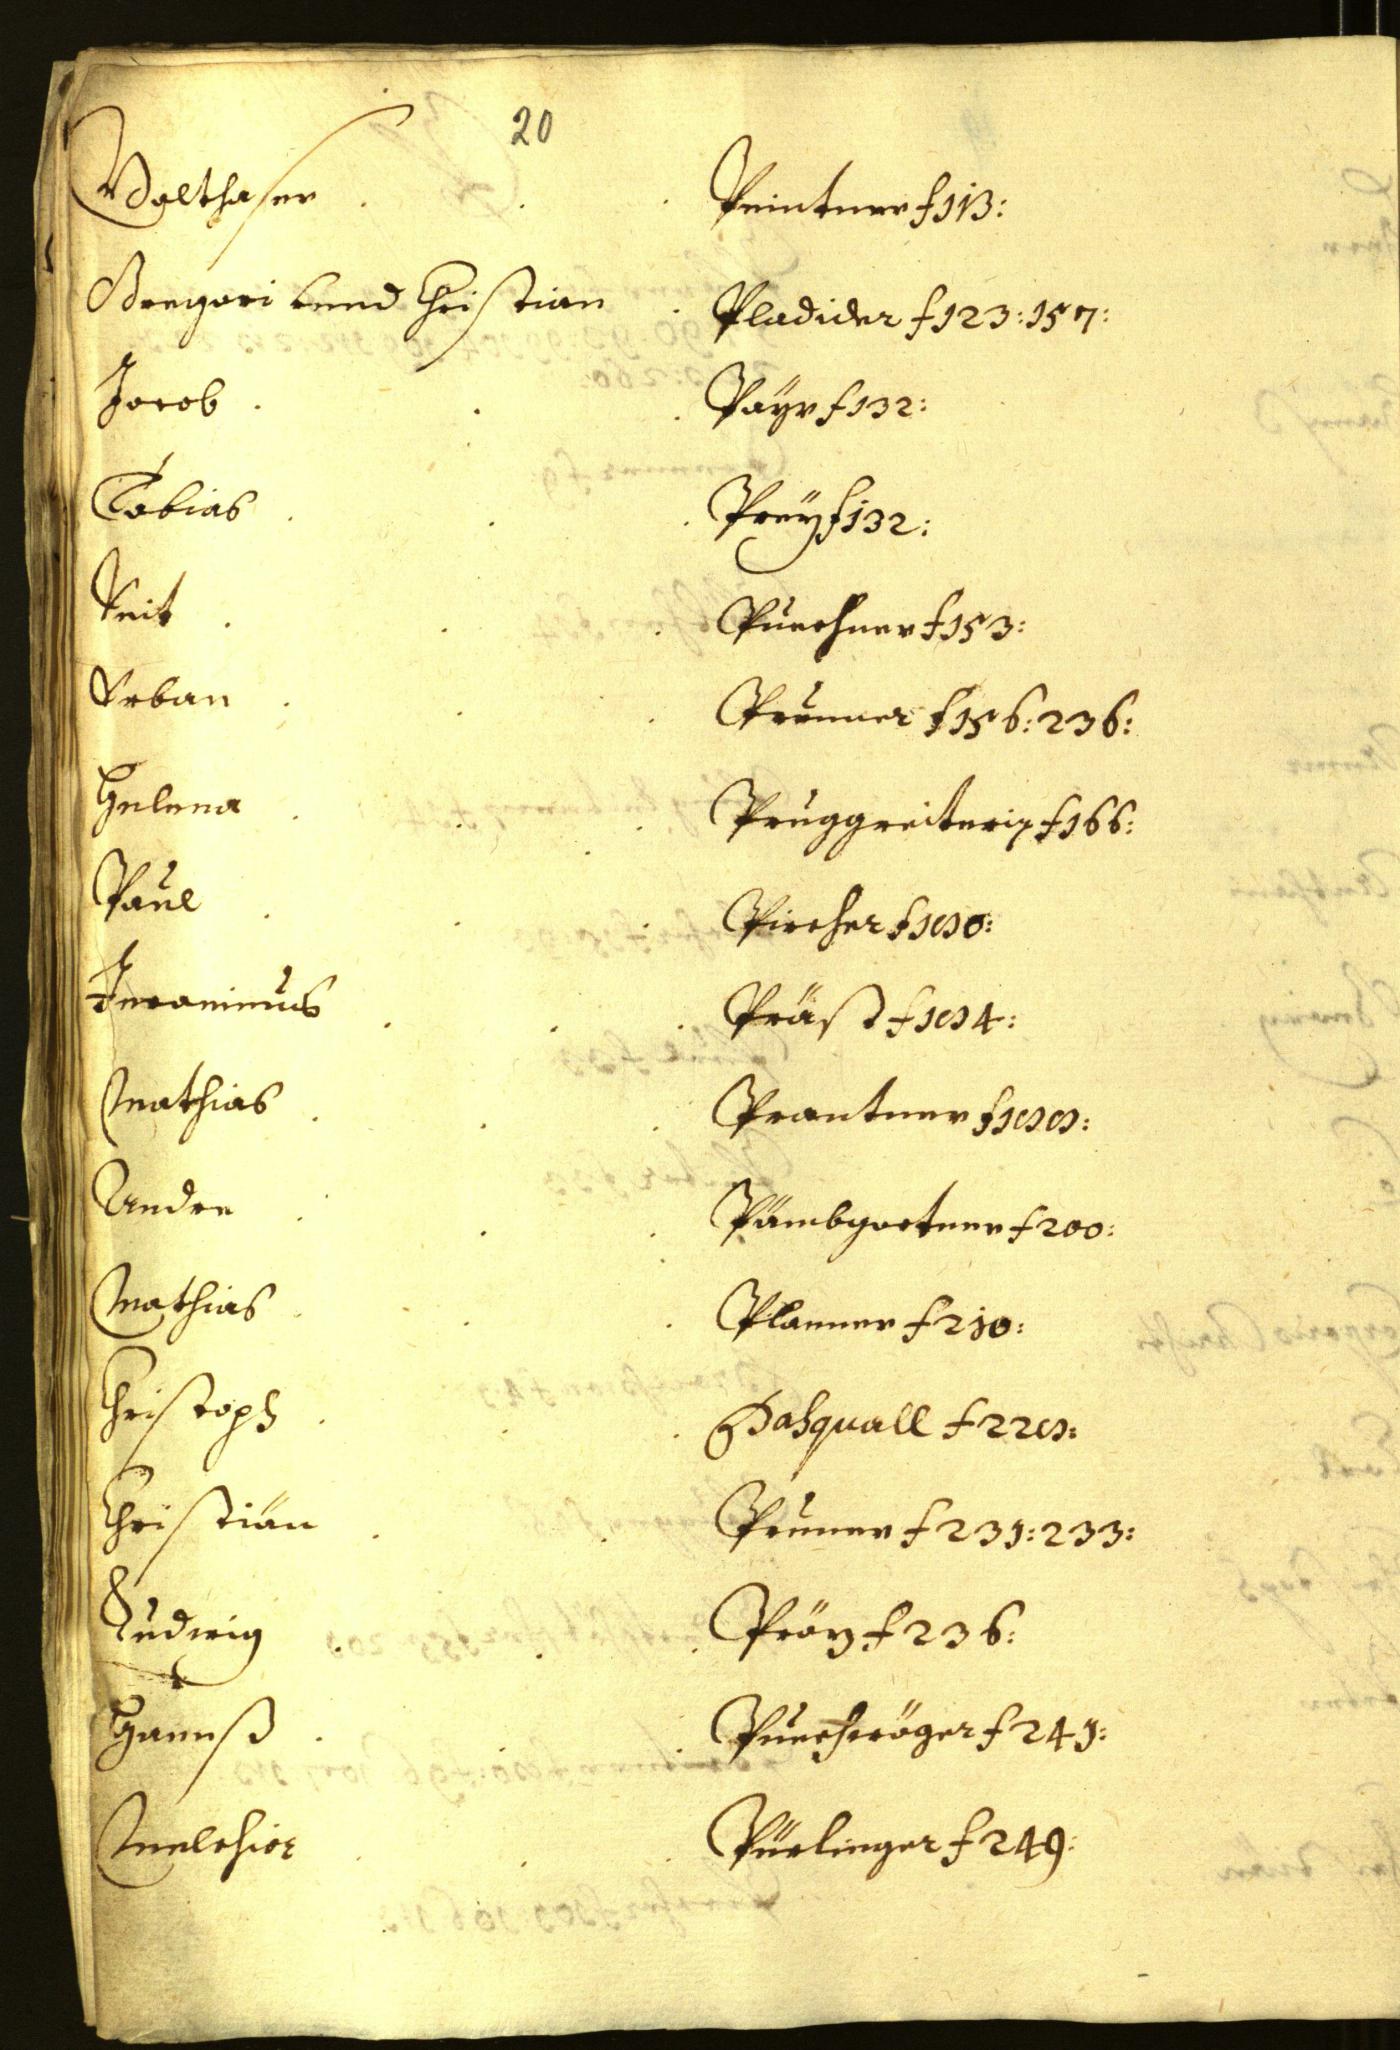 20
Walthaser . . . Peintner f 113:
Gregori vnd Christian . Pladider f 123:157:
Jacob . . . Päyr f 132:
Tobias . . . Preÿ f 132:
Veit . . . Puechner f 153:
Vrban . . . Prunner f 156:236:
Helena . . . Pruggreiterin f 166:
Paul . . . Pircher f 180:
Jeronimus . . . Präst f 184:
Mathias . . . Prantner f 188:
Andre . . . Pämbgartner f 200:
Mathias . . . Planner f 210:
Christoph . . Pasquall f 228:
Christian . . Pruner f 231:233:
Ludwig . . . Pröy f 236:
Hannß . . . Puechröger f 241:
Melchior . . . Pürlinger f 249: